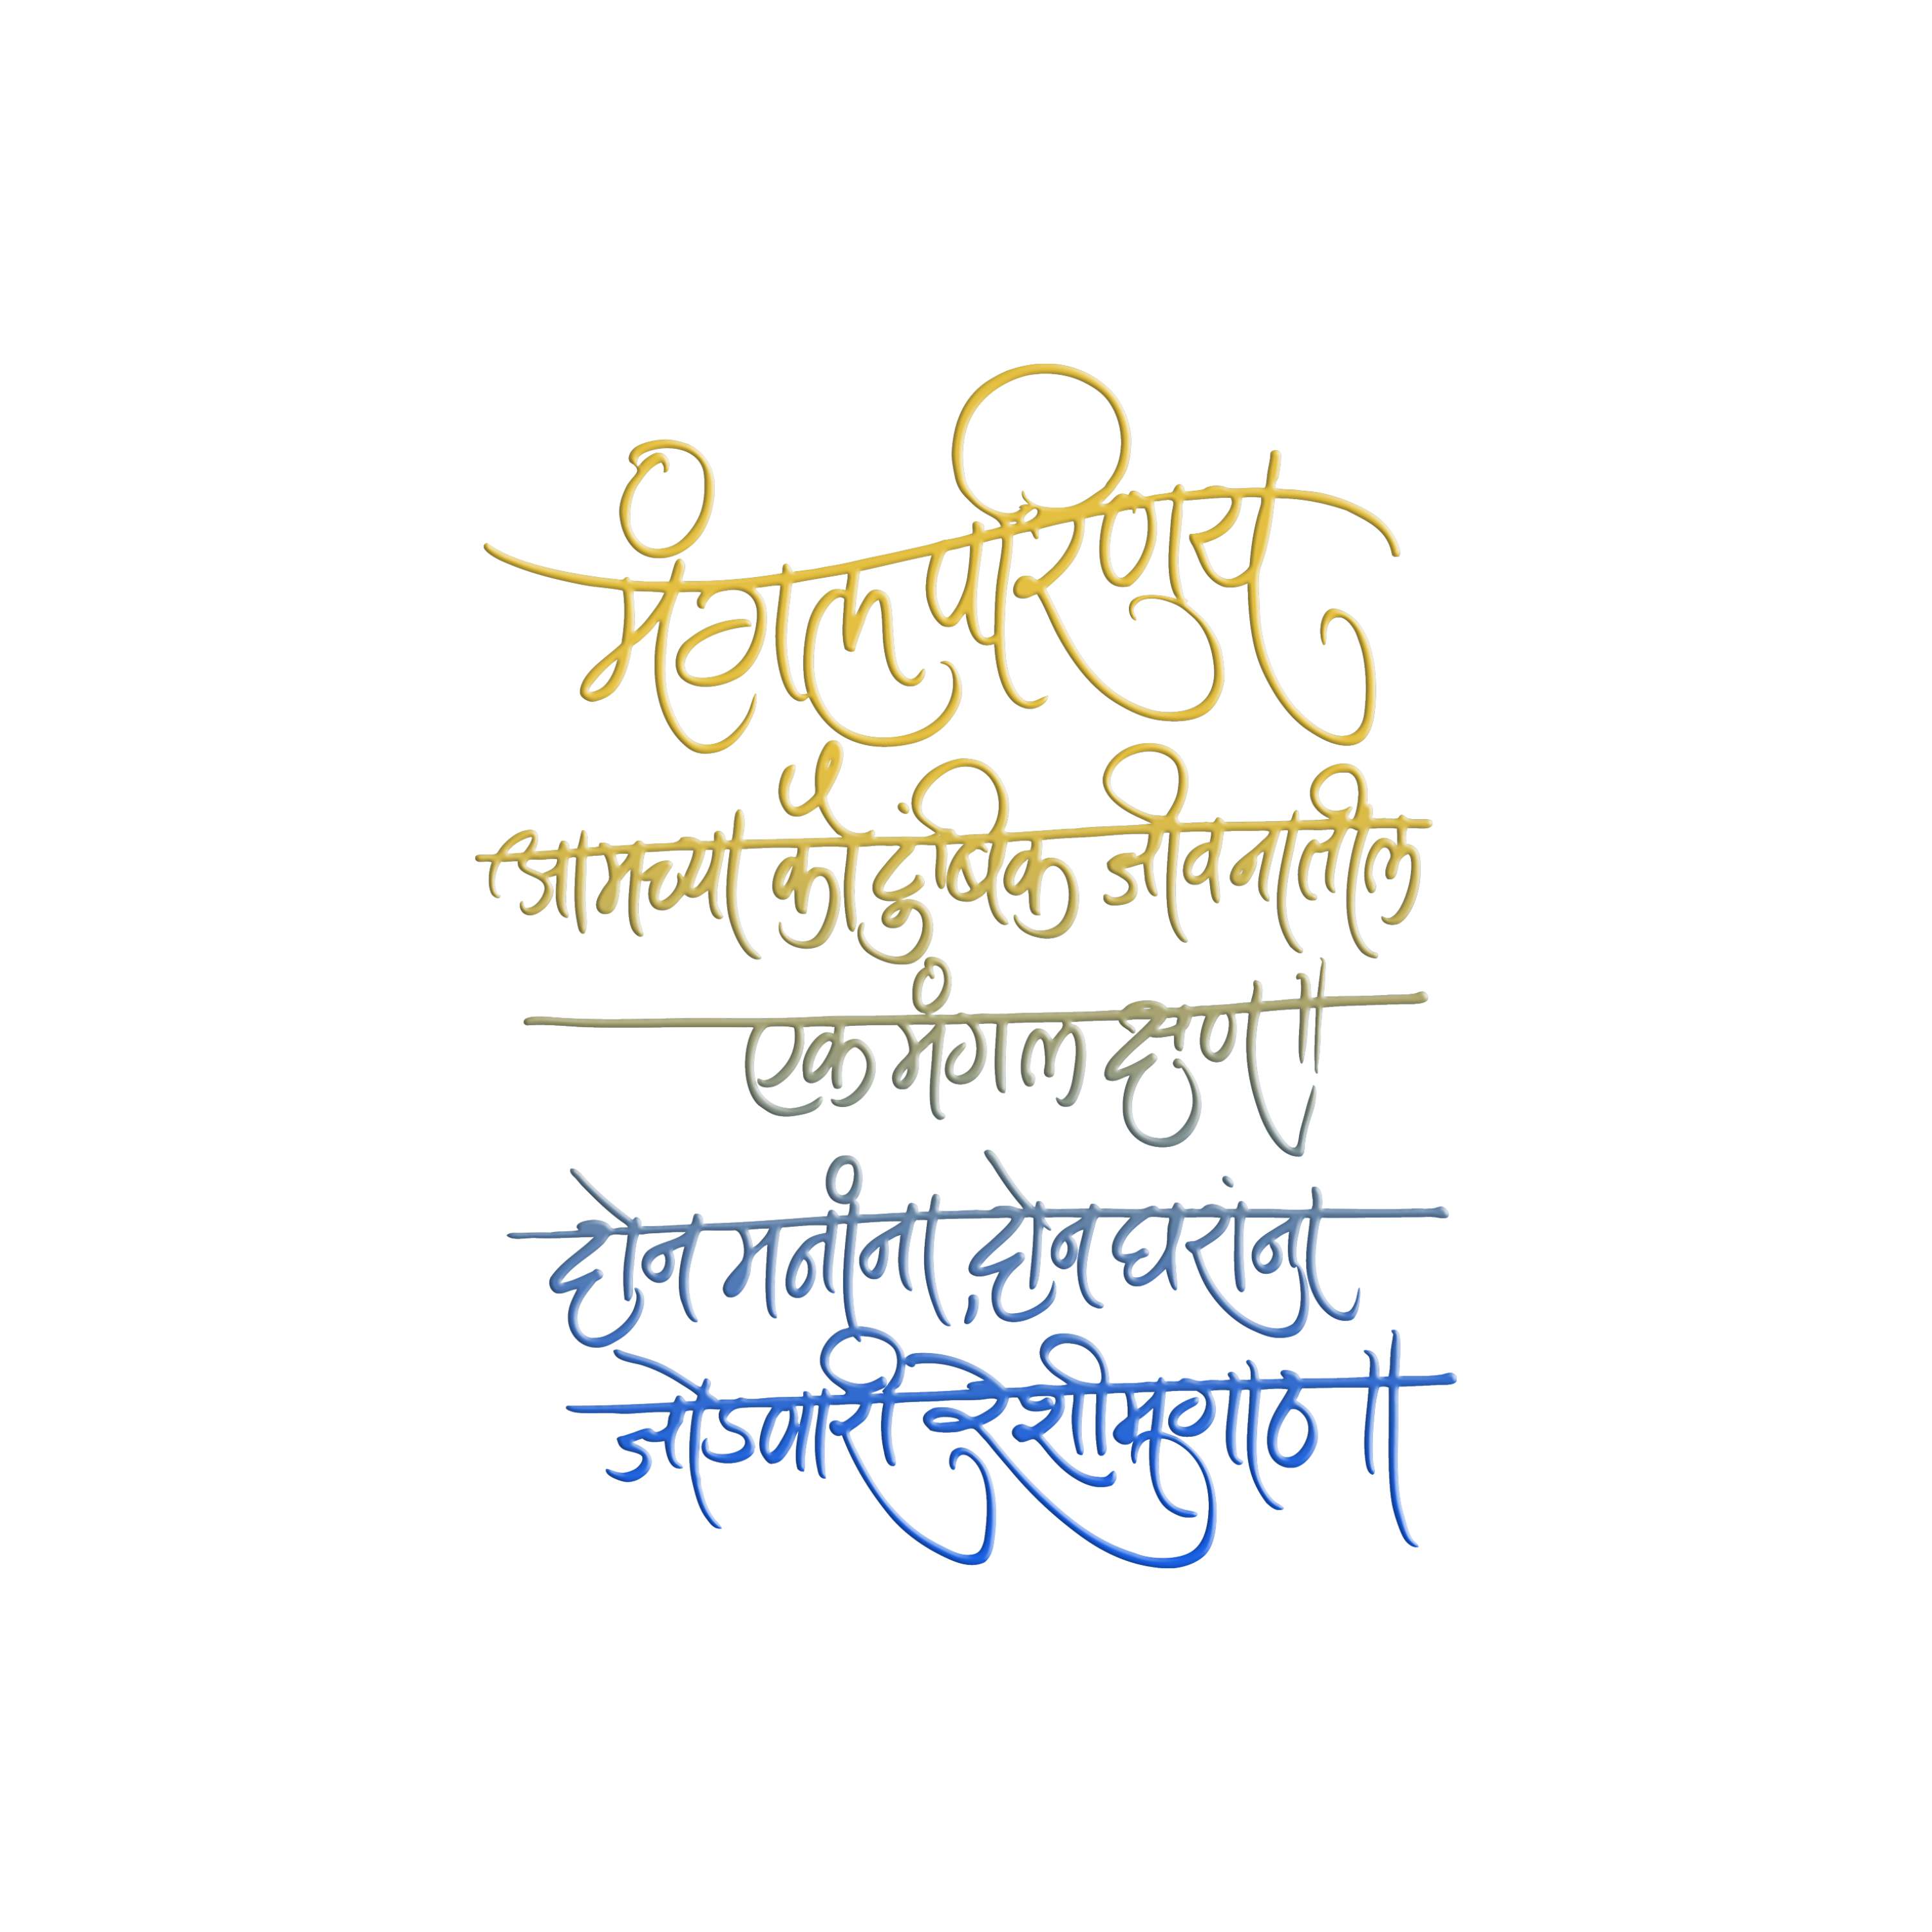 मंगल परिणय
आमच्या कौटुंबिक जीवनातील
एक मंगल क्षण ॥
दोन मनांना, दोन घरांना
जोडणारी रेशीमगाठ ॥